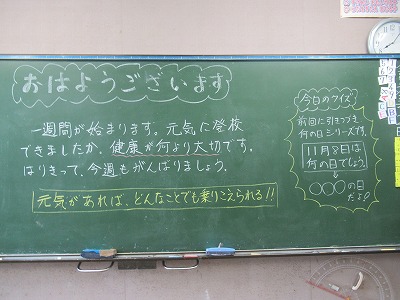 おはようございます
一週間が始まります。元気に登校
できましたか。健康が何より大切です。
はりきって、今週もがんばりましょう。
元気があれば、どんなことでも乗りこえられる!!
今日のクイズ
前回に引きつづき
何の日シリーズです。
11月8日は
何の日でしょう。
↓
○○○の日
だよ♪